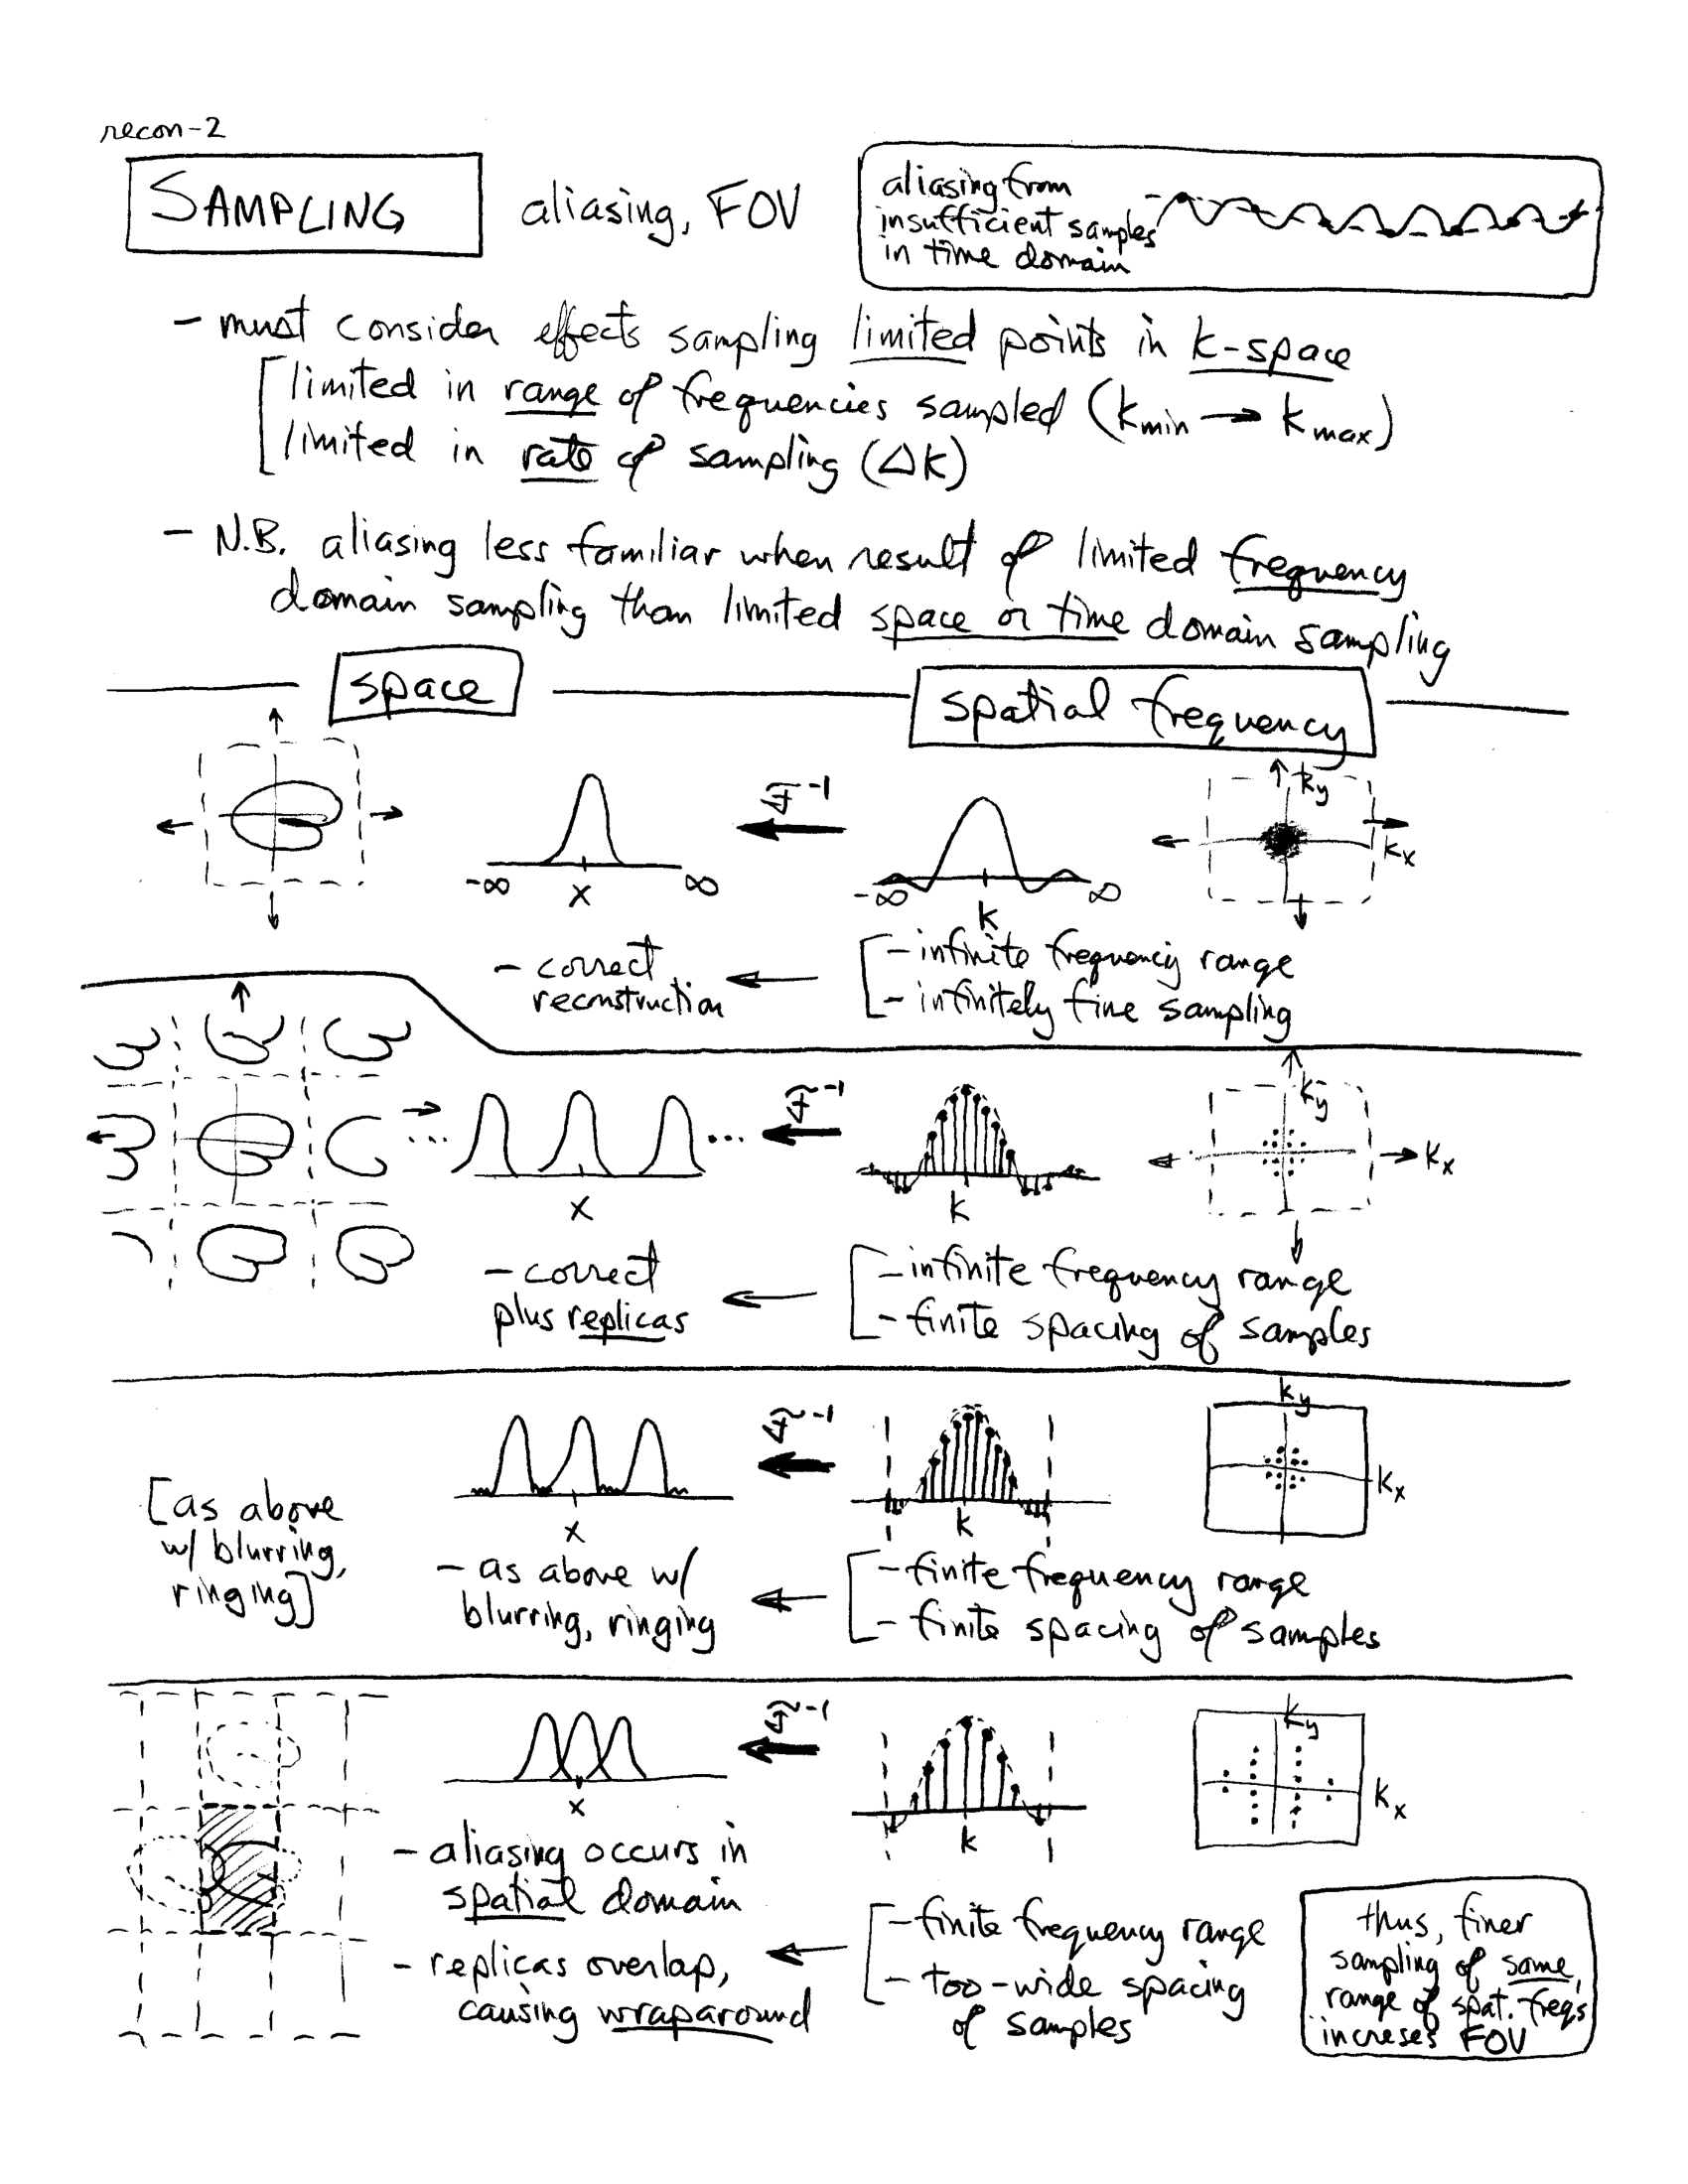 recon-2
SAMPLING
aliasing, FOV
aliasing from
insufficient samples
in time domain
- must consider effects sampling limited points in k-space
[limited in range of frequencies sampled (kmin → kmax)
limited in rate of sampling (Δk)
- N.B. aliasing less familiar when result of limited frequency
domain sampling than limited space or time domain sampling
space
spatial frequency
F⁻¹
-∞ x ∞
-∞ k ∞
ky
kx
- correct
reconstruction
←
[- infinite frequency range
- infinitely fine sampling
... x ...
F⁻¹
k
ky
kx
- correct
plus replicas
←
[- infinite frequency range
- finite spacing of samples
[as above
w/ blurring,
ringing]
x
F⁻¹
k
ky
kx
- as above w/
blurring, ringing
←
[- finite frequency range
- finite spacing of samples
x
F⁻¹
k
ky
kx
- aliasing occurs in
spatial domain
- replicas overlap,
causing wraparound
←
[- finite frequency range
- too-wide spacing
of samples
thus, finer
sampling of same
range of spat. freqs
increses FOV